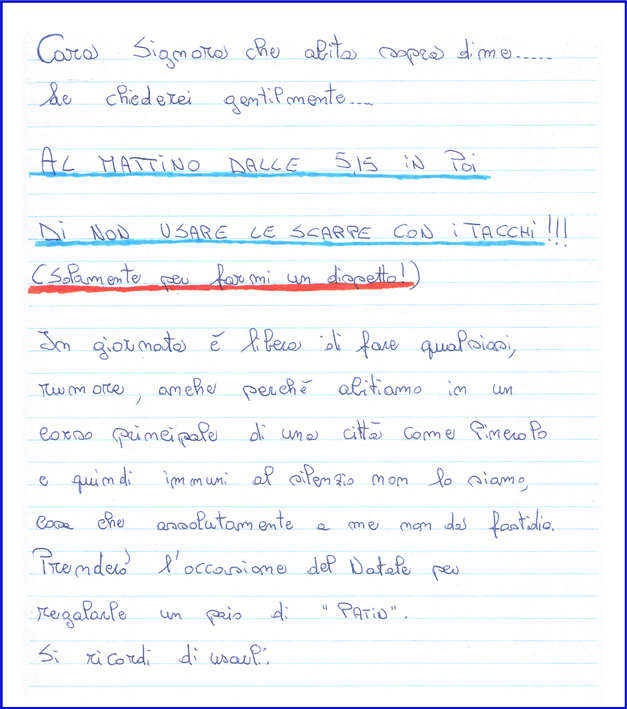 Cara Signora che abita sopra di me.....
Le chiederei gentilmente....
AL MATTINO DALLE 5,15 IN POI
DI NON USARE LE SCARPE CON I TACCHI!!!
(Solamente per farmi un dispetto!)
In giornata è libera di fare qualsiasi,
rumore, anche perché abitiamo in un
corso principale di una città come Pinerolo
e quindi immuni al silenzio non lo siamo,
cosa che assolutamente a me non dà fastidio.
Prenderò l'occasione del Natale per
regalarle un paio di "PATIN".
Si ricordi di usarli.